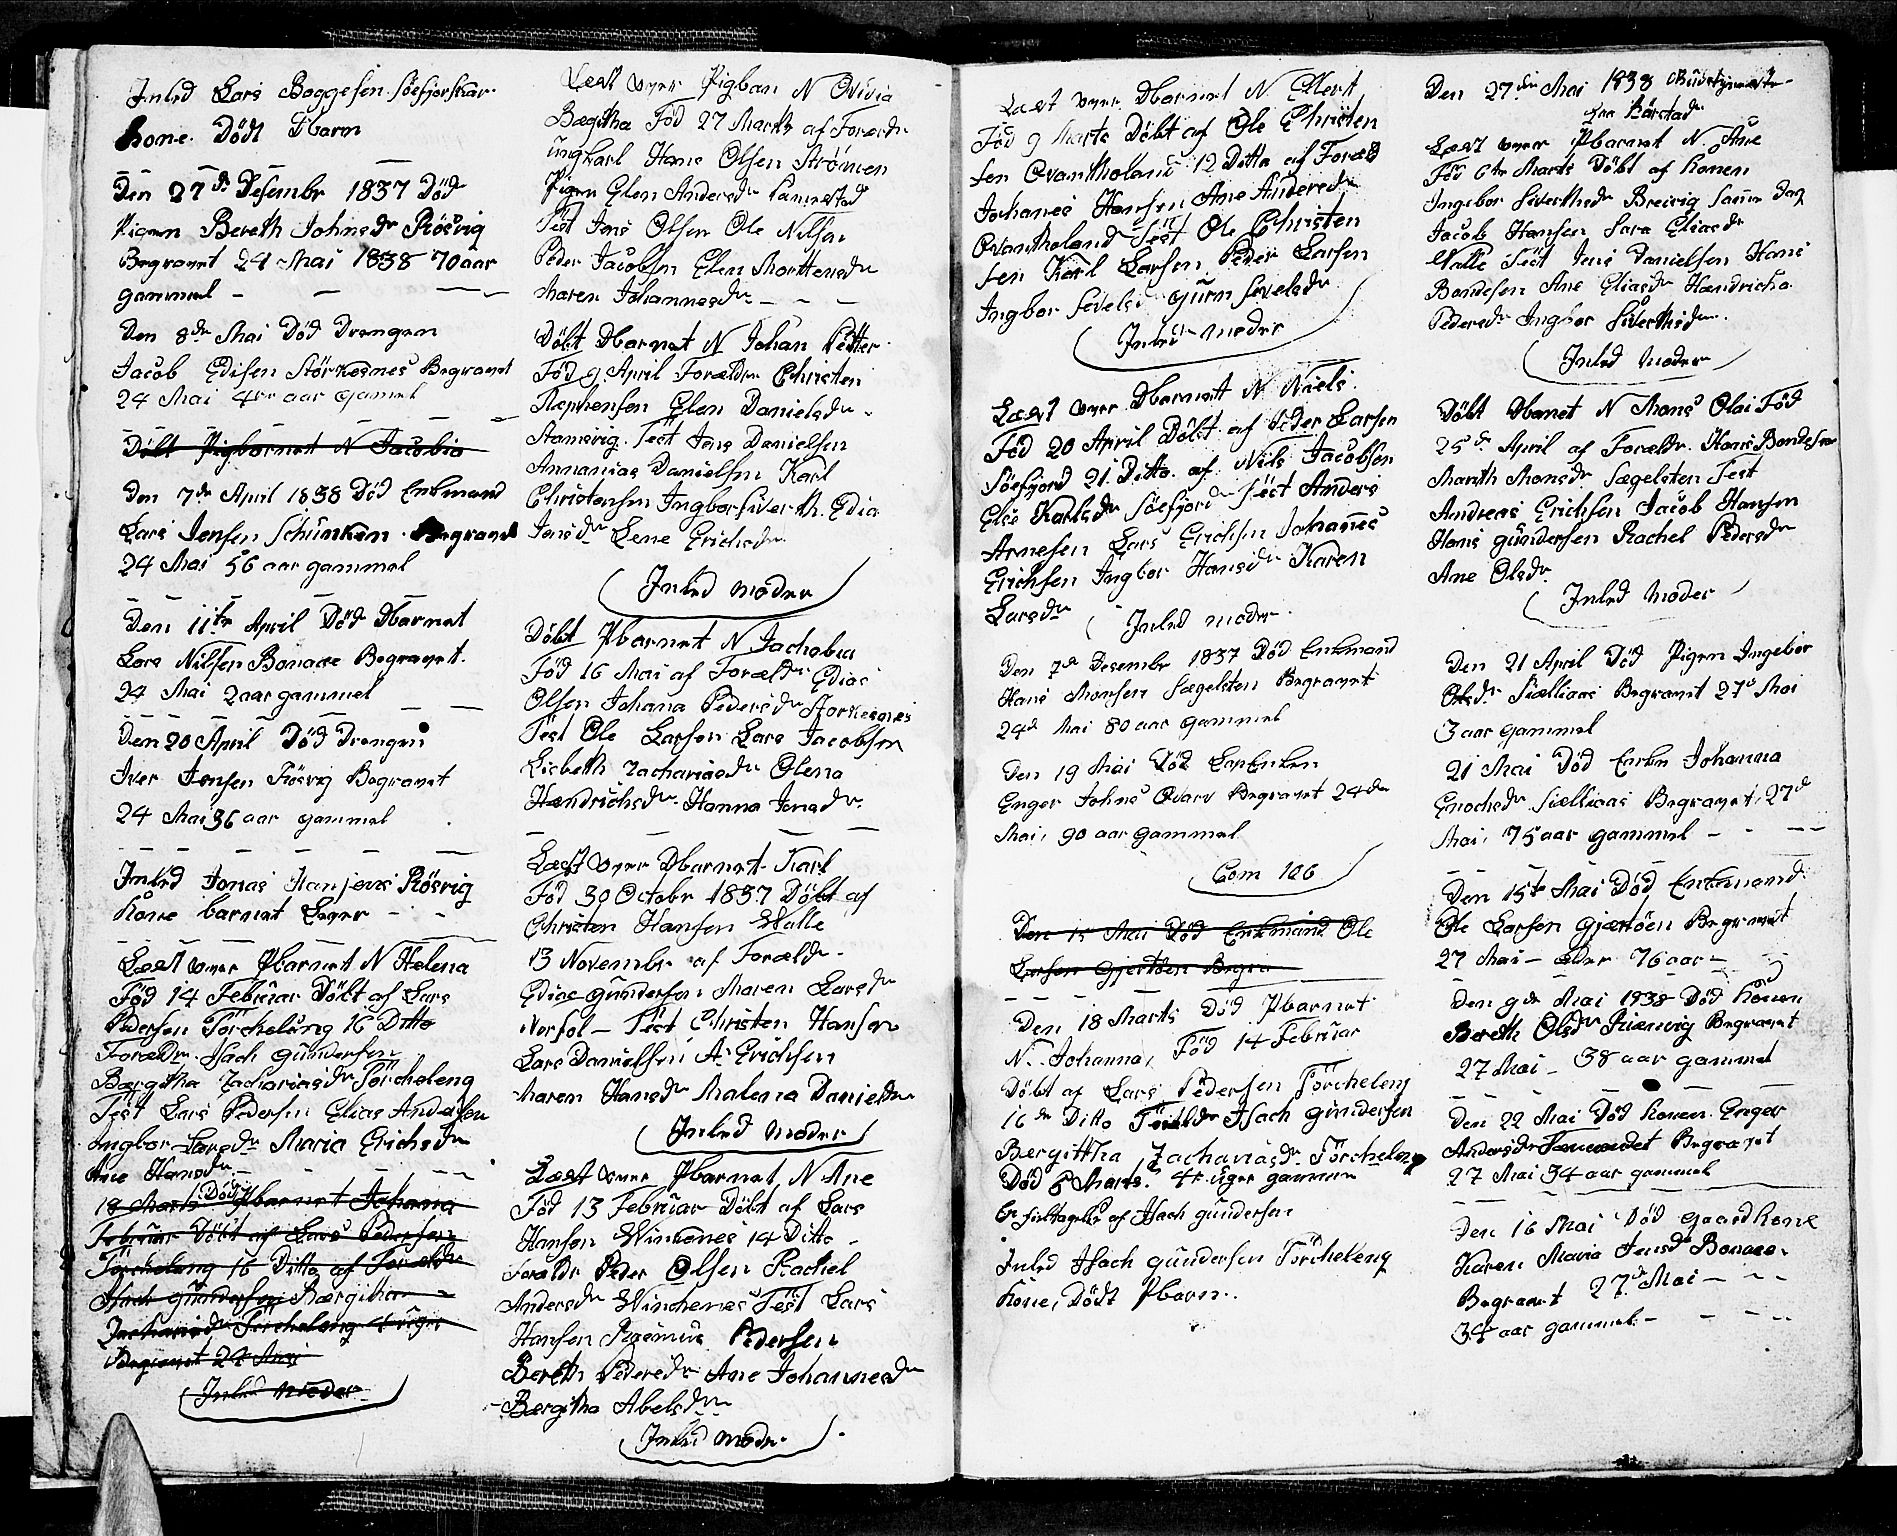 Inled Lars Baggesen Söefjorskar
kone. Dödt Dbarn
Den 27de Desembr 1837 Död
Pigen Bereth Johnsdr Rösvig
Begravet 24 Mai 1838 70 aar
gammel
Den 8de Mai Död Drengen
Jacob Edisen Störkesnes Begravet
24 Mai 4re aar gammel
Döbt Pigbarnet N Jacobia
Den 7de April 1838 Död Enkmand
Lars Jensen Schunken Begravet
24 Mai 56 aar gammel
Den 11te April Död Dbarnet
Lars Nilsen Bonaae Begravet
24 Mai 2 aar gammel
Den 20 April Död Drengen
Iver Jensen Rösvig Begravet
24 Mai 36 aar gammel
Inled Jonas Rösvig
kone barnet Lever
Læst over Pbarnet N Helena
Föd 14 Februar Döbt af Lars
Pedersen Törcheleng 16 Ditto
Foreldr. Isach Gundersen
Bærgitha Zachariasdr Törcheleng
Test Lars Pedersen Elias Andersen
Ingbor Larsdr Maria Erichsdr
Ane Hansdr
18 Marts Död Pbarnet Johana
Februar Döbt af Lars Pedersen
Törcheleng 16 Ditto af Foreldr
Isach Gundersen Bærgitha
Zachariasdr Törcheleng 4 uger
Begravet 24 Mai
Inled moder
Læst over Pigban N Ovidia
Bægitha Föd 27 Marts af Foreldr
ungkarl Hans Olsen Strömen
Pigen Elen Andersdr
Test Jens Olsen Ole Nilsen
Peder Jacobsen Elen Mortensdr
Maren Johannesdr
Döbt Dbarnet N Johan Petter
Föd 9 April Foreldre Christen
Stephensen Elen Danielsdr
Stamsvig. Test Jens Danielsen
Annanias Danielsen Karl
Christensen Ingbor Siverth. Edia
Jensdr Lene Erichsdr
Inled moder
Döbt Pbarnet N Jachobia
Föd 16 Mai af Foreldr Edias
Olsen Johana Pedersdr Storkesnes
Test Ole Larsen Lars Jacobsen
Lisbeth Zachariasdr Olena
Hendrichsdr Hanna Jensdr
Læst over Dbarnet Karl
Föd 30 Octobr 1837 Döbt af
Christen Hansen Walle
13 Novembr af Foreldr
Edias Gundersen Maren Larsdr
Norfol Test Christen Hansen
Lars Danielsen A Erichsen
Maren Hansdr Malena Danielsdr
Inled moder
Læst over Pbarnet N Ane
Föd 13 Februar Döbt af Lars
Hansen Winkenes 14 Ditto
Foreldr Peder Olsen Rachel
Andersdr Winchenes Test Lars
Hansen Rasmus Pedersen
Bereth Pedersdr Ane Johannesdr
Bærgitha Abelsdr
Inled moder
Læst over Dbarnet N Elert
Föd 9 Marts Döbt af Ole Christen
sen Qvantholand 12 Ditto af Foreld
Johanes Hansen Ane Andersdr
Qvantholand Test Ole Christen
sen Karl Larsen Peder Larsen
Ingbor Sevelsdr Gurn Sevelsdr
Inled moder
Læst over Dbarnet N Niels
Föd 20 April Döbt af Peder Larsen
Söefjord 21 Ditto af Nils Jacobsen
Else Karlsdr Söefjord Test Anders
Arnesen Lars Erichsen Johanes
Erichsen Ingbor Hansdr Karen
Larsdr Inled moder
Den 7de Desembr 1837 Död Enkmand
Hans Monsen Sægelsten Begravet
24de Mai 80 aar gammel
Den 19 Mai Död
Enger Johns Qvarv Begravet 24de
Mai, 90 aar gammel
Com 126
Den 15 Mai Död Enkmand Ole
Larsen Gjertöen Begra
Den 18 Marts Död Pbarnet
N. Johanna, Föd 14 Februar
Döbt af Lars Pedersen Törcheleng
16de Ditto Foreldr Isach Gundersen
Bærgittha Zachariasdr Törcheleng
Död 8 Marts. 4re uger gammel
af Isach Gundersen
Inled Isach Gundersen Törcheleng
kone, Dödt Pbarn.
Den 27de Mai 1838
Læst over Pbarnet N. Ane
Föd 6te Marts Döbt af konen
Ingebor Siverthsdr Breivig samme Dag
Jacob Hansen Sara Eliasdr
Valle Test Jens Danielsen Hans
Bendesen Ane Eliasdr Hendricha
Pedersdr Ingbor Siverthsdr
Inled moder
Döbt Dbanet N Mons Olai Föd
25de April af Foreldr. Hans Bendesen
Marith Monsdr Sægelsten Test
Andreas Erichsen Jacob Hansen
Hans Gundersen Rachel Pedersdr
Ane Olsdr
Inled moder
Den 21 April Död Pigen Ingebor
Olsdr Siellaas Begravet 27de Mai
3 aar gammel
21 Mai Död Enken Johanna
Enochsdr Siellaas Begravet 27de
Mai, 75 aar gammel
Den 15te Mai Död Enkmand
Ole Larsen Gjertöen Begravet
27 Mai – alder 76 aar
Den 9de Mai 1838 Död konen
Bereth Olsdr Begravet
27 Mai – 38 aar gammel
Den 22 Mai Död konen Enger
Andersdr Begravet
27 Mai 34 aar gammel
Den 16 Mai Död Gaardkone
Karen Maria Jensdr Bonaae
Begravet 27de Mai
34 aar gammel